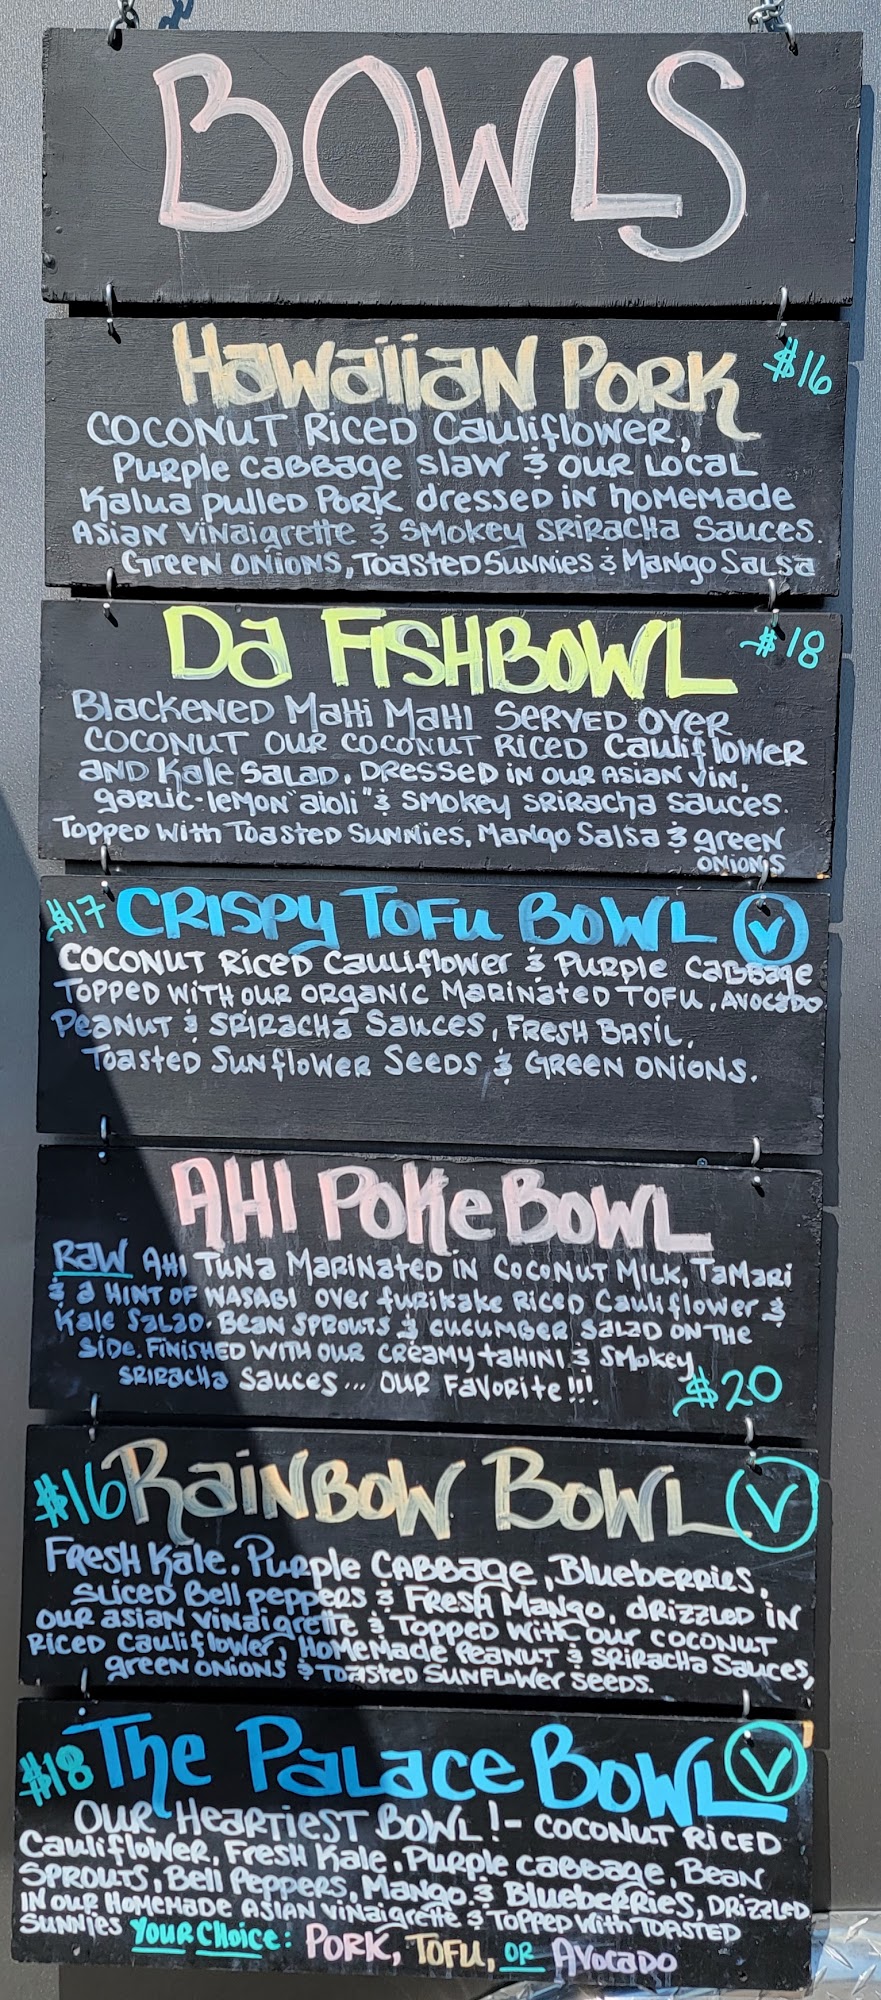 BOWLS
Hawaiian Pork $16
Coconut Riced Cauliflower,
Purple Cabbage slaw & our local
Kalua pulled Pork dressed in homemade
Asian Vinaigrette & Smokey Sriracha Sauces.
Green Onions, Toasted Sunnies & Mango Salsa
Da FishBowl $18
Blackened Mahi Mahi served over
coconut our coconut riced cauliflower
and Kale Salad. Dressed in our Asian Vin,
garlic-lemon "aioli" & smokey sriracha sauces.
Topped with Toasted Sunnies, Mango Salsa & green
onions
$17 Crispy Tofu Bowl V
Coconut Riced Cauliflower & Purple Cabbage
Topped with our organic Marinated Tofu, Avocado
Peanut & Sriracha Sauces, Fresh Basil,
Toasted Sunflower Seeds & Green Onions.
Ahi Poke Bowl
Raw Ahi Tuna Marinated in Coconut Milk, Tamari
& a hint of wasabi over furikake Riced Cauliflower &
Kale Salad. Bean Sprouts & cucumber salad on the
side. Finished with our creamy tahini & Smokey
Sriracha Sauces... our Favorite!!!
$20
$16 Rainbow Bowl V
Fresh Kale, Purple Cabbage, Blueberries,
sliced Bell peppers & Fresh Mango, drizzled in
our asian vinaigrette & Topped with our coconut
Riced Cauliflower, Homemade Peanut & Sriracha Sauces,
green onions & toasted sunflower seeds.
$18 The Palace Bowl V
Our Heartiest Bowl! - Coconut Riced
Cauliflower, Fresh Kale, Purple cabbage, Bean
Sprouts, Bell Peppers, Mango & Blueberries, Drizzled
in our homemade Asian vinaigrette & Topped with toasted
sunnies Your Choice: Pork, Tofu, or Avocado